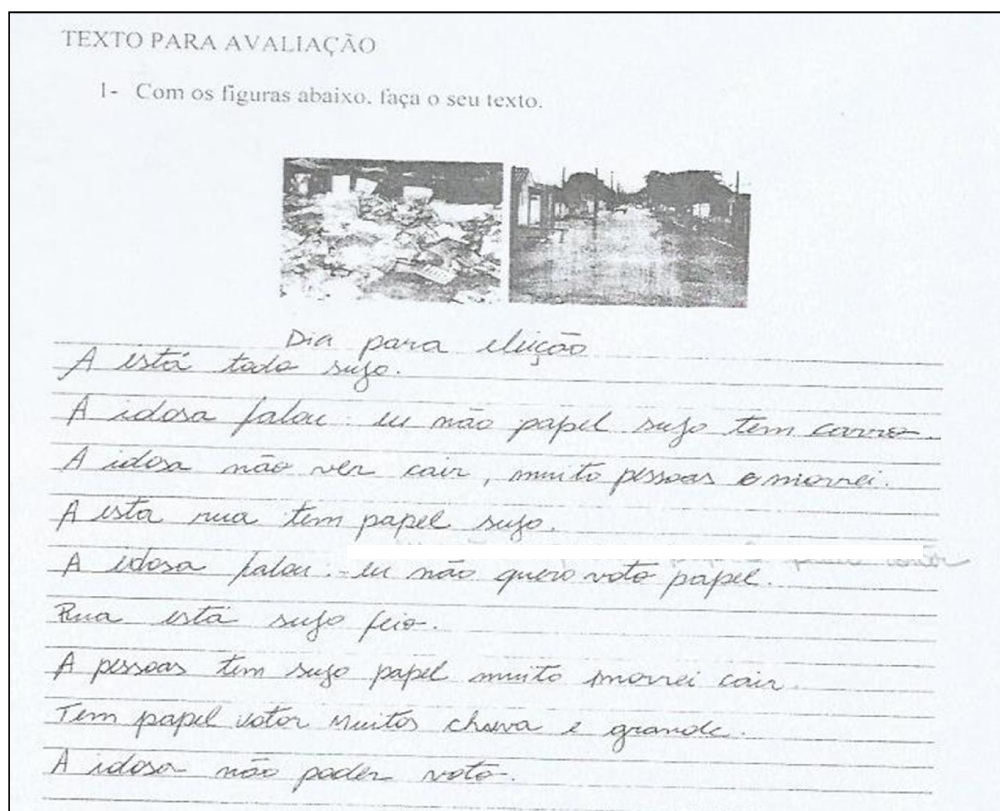 TEXTO PARA AVALIAÇÃO
1- Com os figuras abaixo, faça o seu texto.
Dia para eleição
A está todo sujo.
A idosa falou: eu não papel sujo tem carro.
A idosa não ver cair, muito pessoas e morrei.
A esta rua tem papel sujo.
A idosa falou: - eu não quero voto papel.
Rua está sujo feio.
A pessoas tem sujo papel muito morrei cair.
Tem papel votor muitos chuva e grande.
A idosa não poder voto.